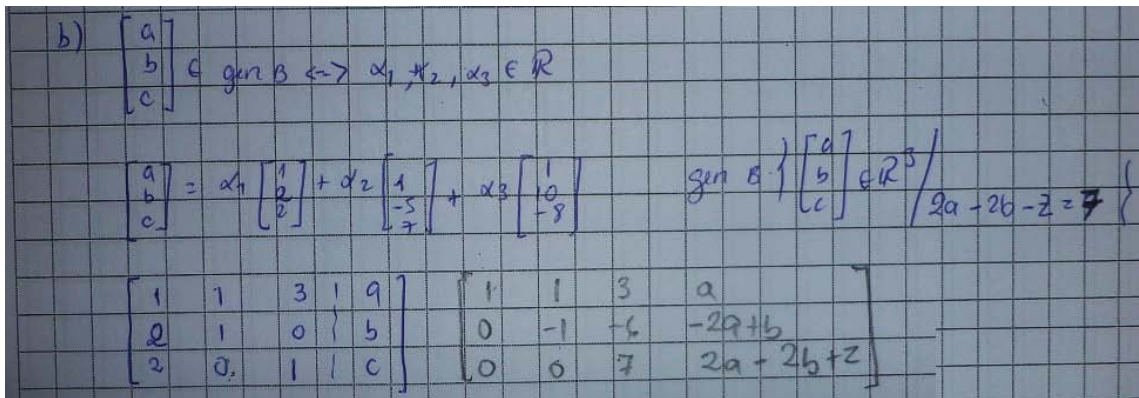 b) [a b c] ∈ gen B <-> α1, α2, α3 ∈ R
[a b c] = α1 [1 2 2] + α2 [1 -5 7] + α3 [1 0 -8] gen B } [a b c] ∈ R³ / 2a - 2b - z = 7 {
[1 1 3 | a] [1 1 3 a]
[2 1 0 | b] [0 -1 -6 -2a+b]
[2 0 1 | c] [0 0 7 2a - 2b + z]